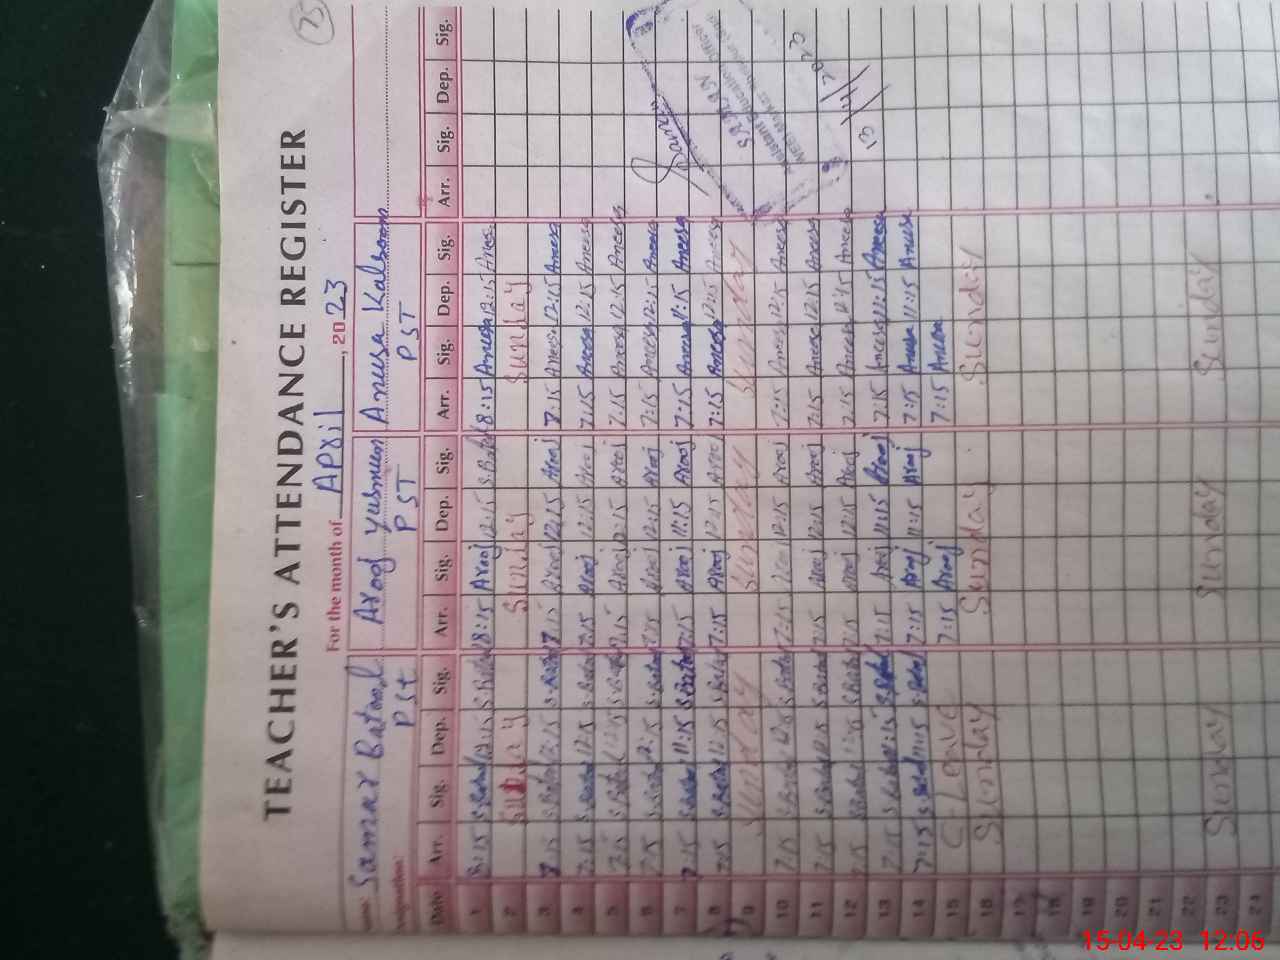 75
TEACHER'S ATTENDANCE REGISTER
For the month of April, 2023
Name: Samar Batool Arooj Yasmeen Aneesa Kalsoom
Designation: PST PST PST
Date Arr. Sig. Dep. Sig. Arr. Sig. Dep. Sig. Arr. Sig. Dep. Sig. Arr. Sig. Dep. Sig.
1 8:15 S.Batool 12:15 S.Batool 8:15 Arooj 12:15 8:15 Aneesa 12:15 Aneesa
2 Sunday Sunday Sunday
3 7:15 S.Batool 12:15 S.Batool 7:15 Arooj 12:15 Arooj 7:15 Aneesa 12:15 Aneesa
4 7:15 S.Batool 12:15 S.Batool 7:15 Arooj 12:15 Arooj 7:15 Aneesa 12:15 Aneesa
5 7:15 S.Batool 12:15 S.Batool 7:15 Arooj 12:15 Arooj 7:15 Aneesa 12:15 Aneesa
6 7:15 S.Batool 12:15 S.Batool 7:15 Arooj 12:15 Arooj 7:15 Aneesa 12:15 Aneesa
7 7:15 S.Batool 11:15 S.Batool 7:15 Arooj 11:15 Arooj 7:15 Aneesa 11:15 Aneesa
8 7:15 S.Batool 12:15 S.Batool 7:15 Arooj 12:15 Arooj 7:15 Aneesa 12:15 Aneesa
9 Sunday Sunday Sunday
10 7:15 S.Batool 12:15 S.Batool 7:15 Arooj 12:15 Arooj 7:15 Aneesa 12:15 Aneesa
11 7:15 S.Batool 12:15 S.Batool 7:15 Arooj 12:15 Arooj 7:15 Aneesa 12:15 Aneesa
12 7:15 S.Batool 12:15 S.Batool 7:15 Arooj 12:15 Arooj 7:15 Aneesa 12:15 Aneesa
13 7:15 S.Batool 11:15 S.Batool 7:15 Arooj 11:15 Arooj 7:15 Aneesa 11:15 Aneesa
14 7:15 S.Batool 11:15 S.Batool 7:15 Arooj 11:15 Arooj 7:15 Aneesa 11:15 Aneesa
15 C-Leave 7:15 Arooj 7:15 Aneesa
16 Sunday Sunday Sunday
17
18
19
20
21
22
23 Sunday Sunday Sunday
24
Assistant Education Officer
15-04-23 12:06